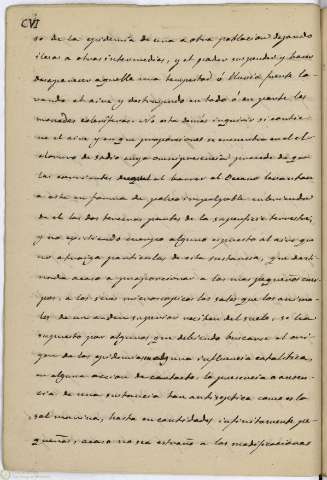 CVI
so de la epidemia de una a otra poblacion dejando
ilesas a otras intermedias, y el poder suspender y hacer
desaparecer aquella una tempestad ó lluvia fuerte la-
vando el aire y destruyendo en todo ó en parte las
monades colerificas. No esta demás inquirir si contie-
ne el aire y en que proporciones se encuentra en el el
cloruro de sodio cuya omnipresencia procede de que
las corrientes de aquel al barrer al Oceano levantan
a este en forma de polvo impalpable cubriendo
de el las dos terceras partes de la superficie terrestre,
y no existiendo cuerpo alguno espuesto al aire que
no atraiga particulas de esta sustancia, que desti-
nada acaso a proporcionar a los mas pequeños cuer-
pos, a los seres microscopicos las sales que los anima-
les de un orden superior reciben del suelo, se ha
supuesto por algunos que debiendo buscarse el ori-
gen de las epidemias en alguna influencia catalitica,
en alguna accion de contacto, la presencia o ausen-
cia de una sustancia tan antiseptica como es la
sal marina, hasta en cantidades infinitamente pe-
queñas, acaso no sea estraño a las modificaciones